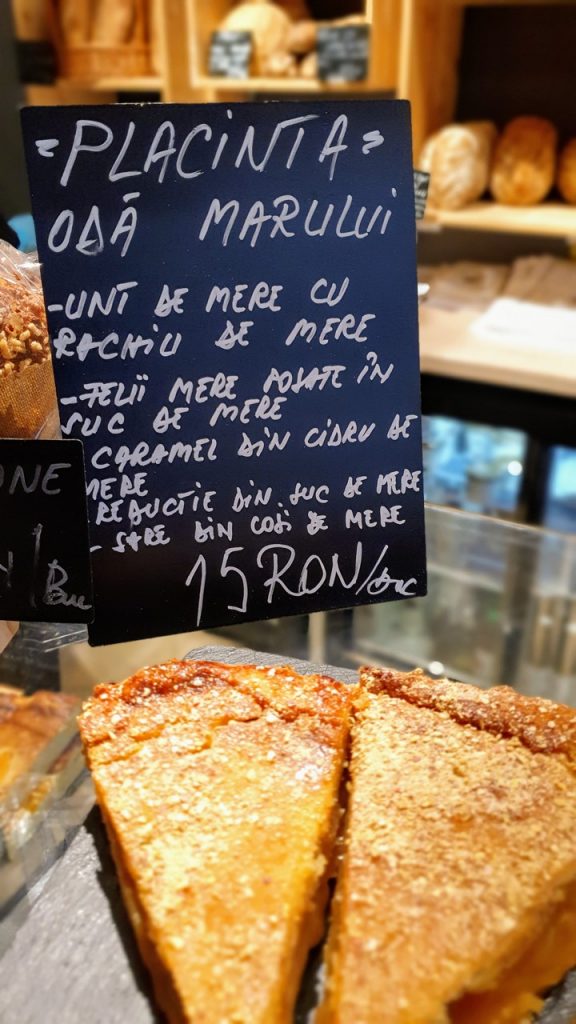 "PLACINTA"
ODĂ MARULUI
-UNT DE MERE CU
RACHIU DE MERE
-FELII MERE POSATE ÎN
SUC DE MERE
CARAMEL DIN CIDRU DE
MERE
REDUCTIE DIN SUC DE MERE
- SARE DIN COJI DE MERE
15 RON/buc
ONE
/Buc